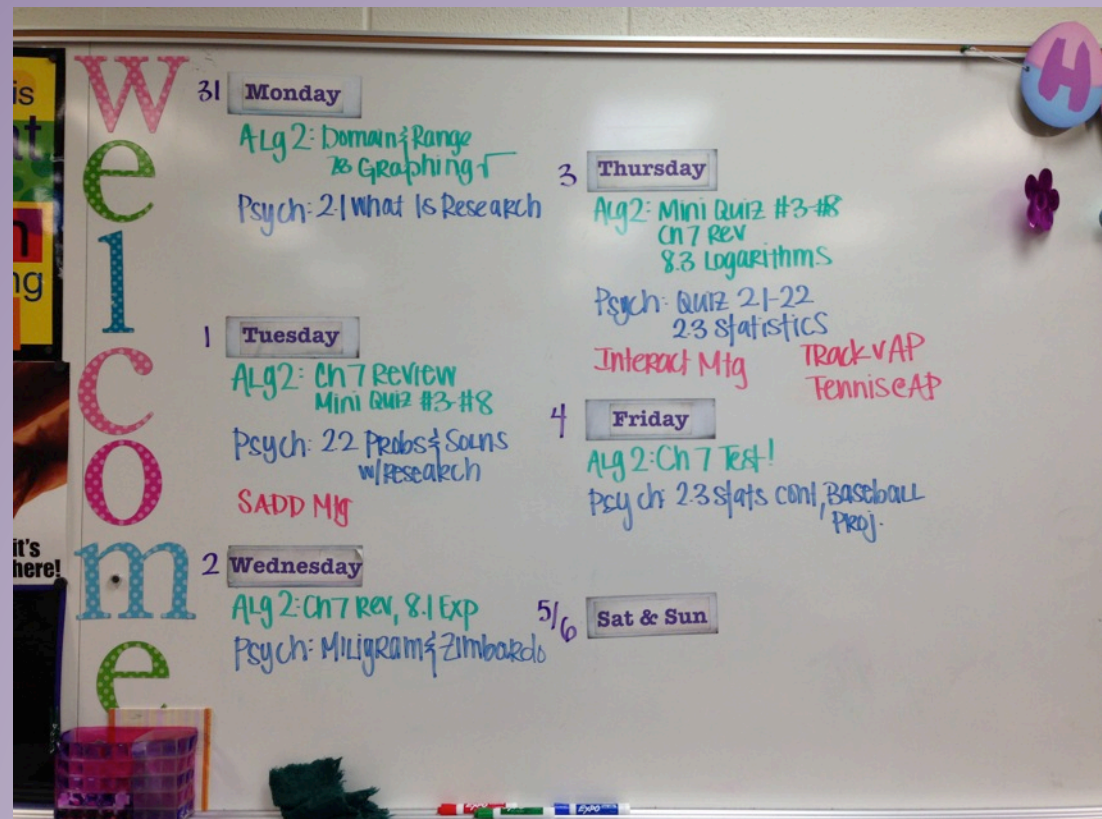 Welcome
31 Monday
Alg 2: Domain & Range
Graphing √
Psych: 2.1 What Is Research
1 Tuesday
Alg 2: Ch 7 Review
Mini Quiz #3-#8
Psych: 2.2 Probs & Solns
w/Research
SADD Mtg
2 Wednesday
Alg 2: Ch 7 Rev, 8.1 Exp
Psych: Miligram & Zimbardo
3 Thursday
Alg 2: Mini Quiz #3-#8
Ch 7 Rev
8.3 Logarithms
Psych: Quiz 2.1-2.2
2.3 Statistics
Interact Mtg
Track v AP
Tennis @ AP
4 Friday
Alg 2: Ch 7 Test!
Psych: 2.3 Stats cont, Baseball
Proj.
5/6 Sat & Sun
H
is
ng
it's
here!
EXPO